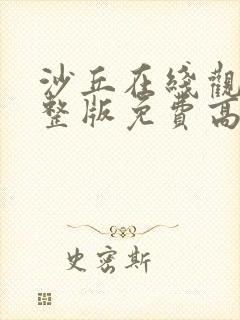 沙丘在綫觀
整版免費高
史密斯